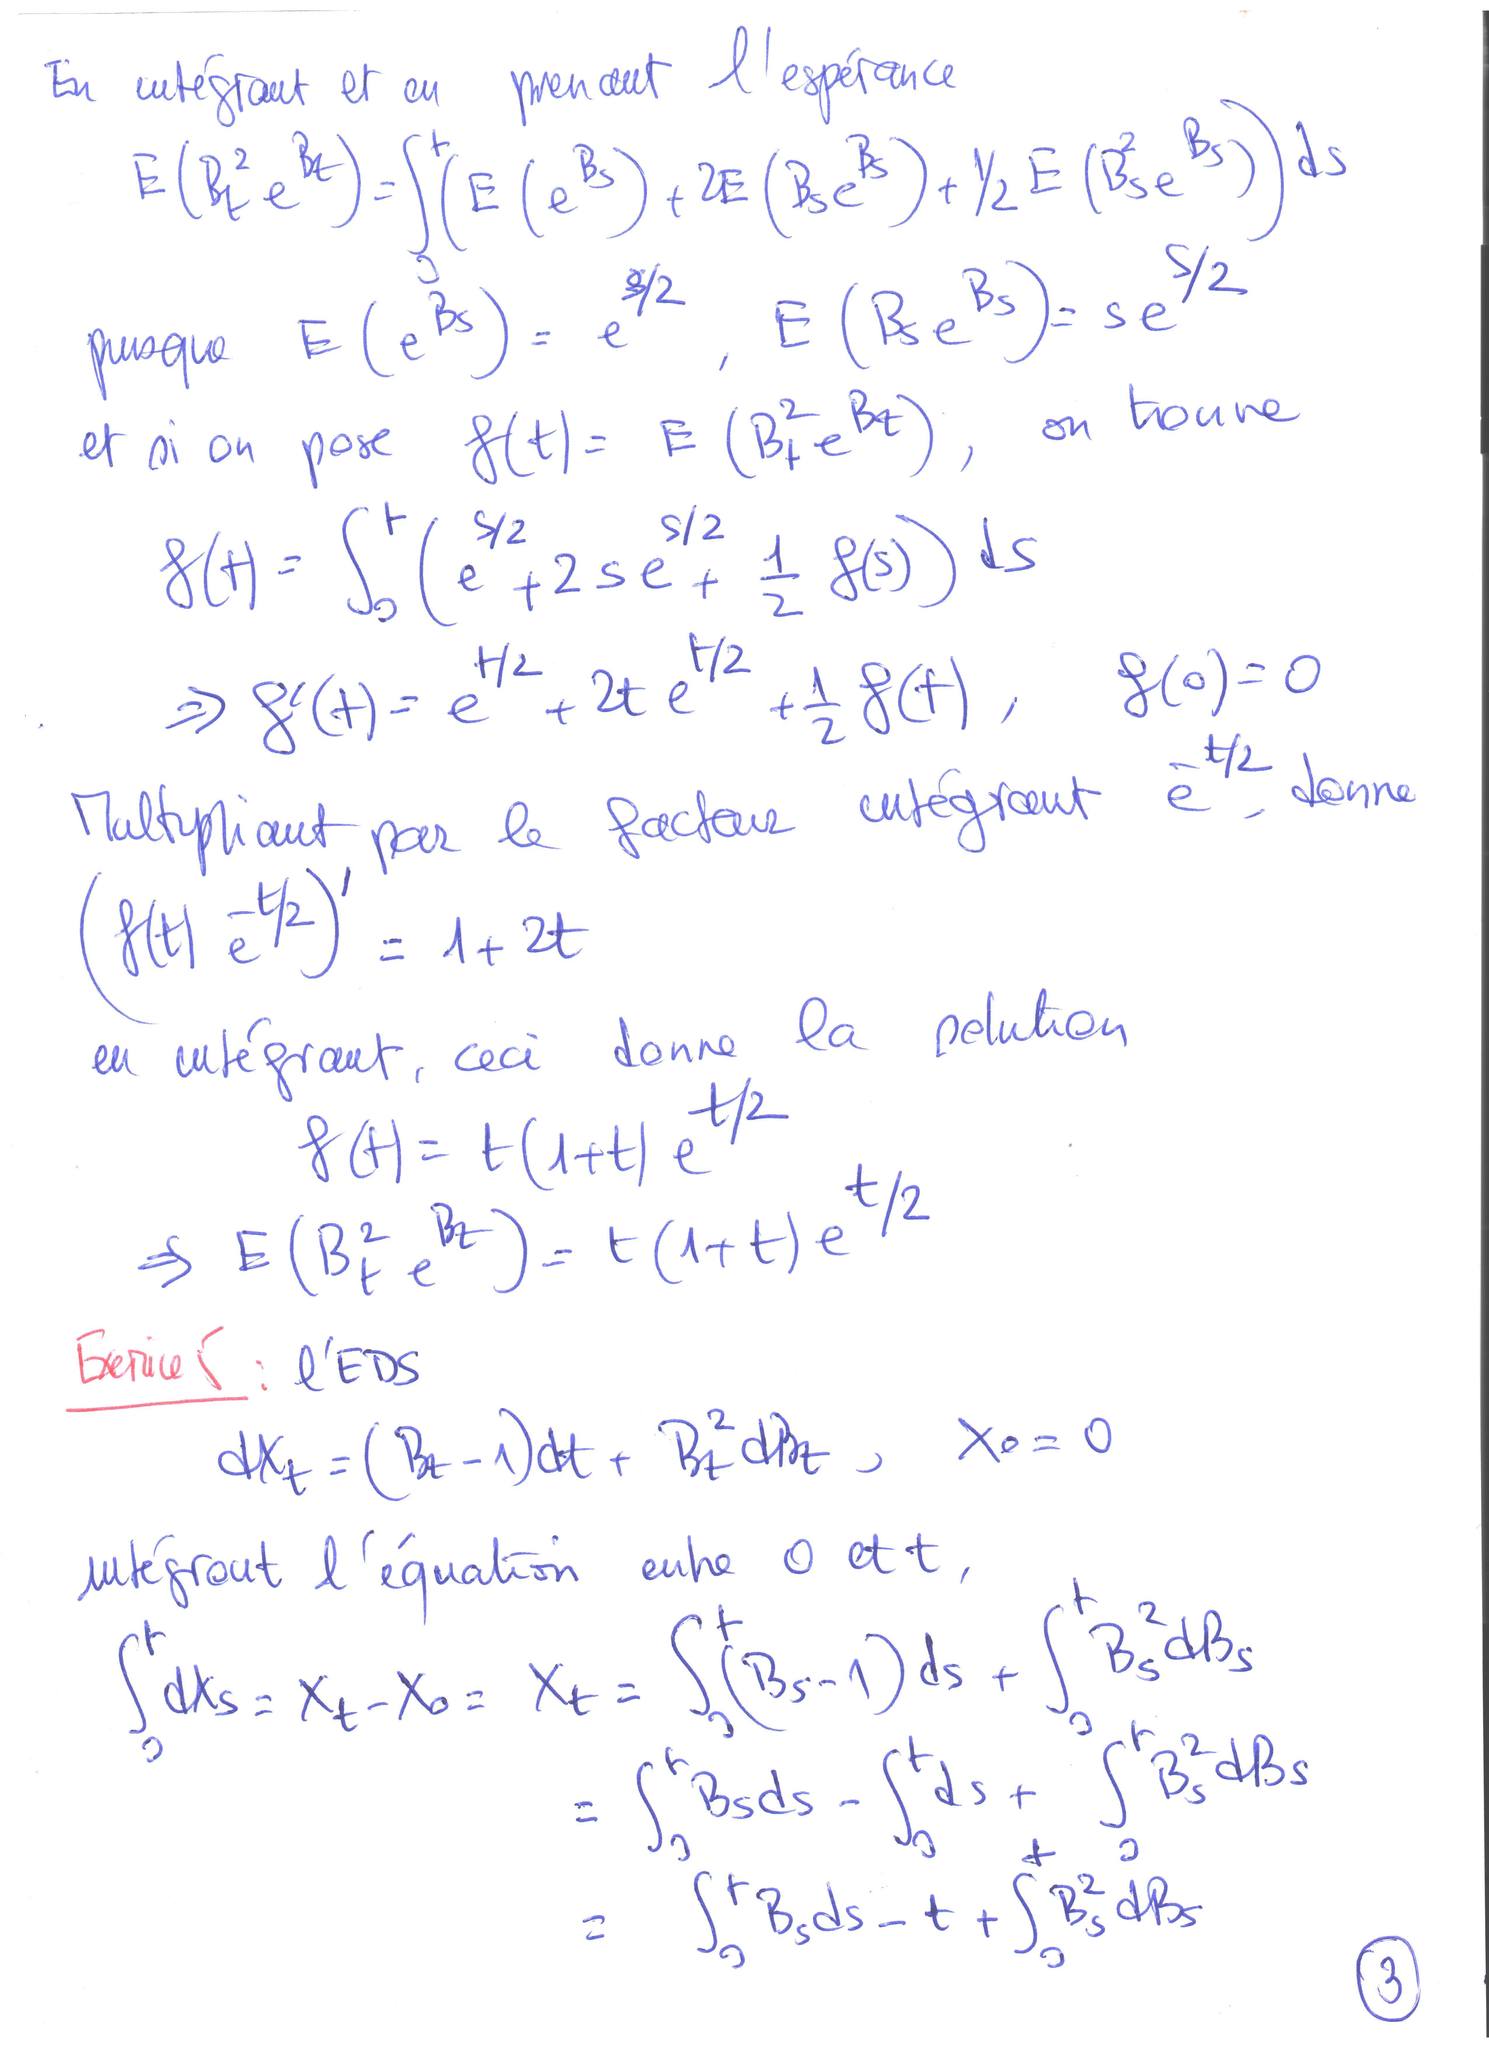 En intégrant et en prenant l'espérance
E(B_t^2 e^{B_t}) = ∫_0^t (E(e^{B_s}) + 2E(B_s e^{B_s}) + 1/2 E(B_s^2 e^{B_s})) ds
puisque E(e^{B_s}) = e^{s/2}, E(B_s e^{B_s}) = s e^{s/2}
et si on pose f(t) = E(B_t^2 e^{B_t}), on trouve
f(t) = ∫_0^t (e^{s/2} + 2 s e^{s/2} + 1/2 f(s)) ds
⇒ f'(t) = e^{t/2} + 2t e^{t/2} + 1/2 f(t), f(0) = 0
Multipliant par le facteur intégrant e^{-t/2}, donne
(f(t) e^{-t/2})' = 1 + 2t
en intégrant, ceci donne la solution
f(t) = t(1+t) e^{t/2}
⇒ E(B_t^2 e^{B_t}) = t(1+t) e^{t/2}
Exerice 5 : l'EDS
dX_t = (B_t - 1)dt + B_t^2 dB_t, X_0 = 0
intégrant l'équation entre 0 et t,
∫_0^t dX_s = X_t - X_0 = X_t = ∫_0^t (B_s - 1) ds + ∫_0^t B_s^2 dB_s
= ∫_0^t B_s ds - ∫_0^t ds + ∫_0^t B_s^2 dB_s
= ∫_0^t B_s ds - t + ∫_0^t B_s^2 dB_s
3